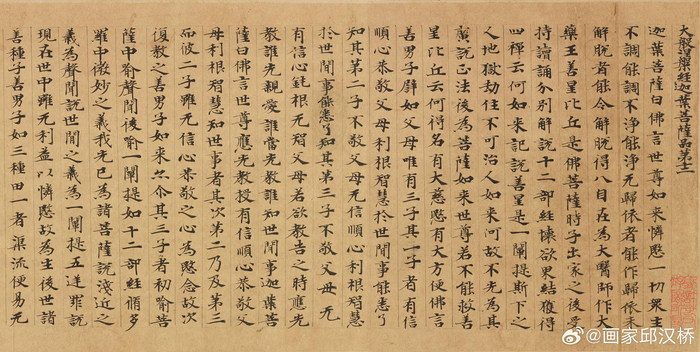 大般涅槃經迦葉菩薩品第十二
迦葉菩薩白佛言世尊如來憐愍一切眾生
不調能調不淨能淨无歸依者能作歸依未
解脫者能令解脫得八自在為大醫師作大
藥王善星比丘是佛菩薩時子出家之後受
持讀誦分別解說十二部經壞欲界結獲得
四禪云何如來記說善星是一闡提斯下之
人地獄劫住不可治人如來何故不先為其
演說正法後為菩薩如來世尊若不能救善
星比丘云何得名有大慈愍有大方便佛言
善男子譬如父母唯有三子其一子者有信
順心恭敬父母利根智慧於世間事能悉了
知其第二子不敬父母无信順心利根智慧
於世間事能悉了知其第三子不敬父母无
有信心鈍根无智父母若欲教告之時應先
教誰先親愛誰當先教誰知世間事迦葉菩
薩白佛言世尊應先教授有信順心恭敬父
母利根智慧知世事者其次第二乃及第三
而彼二子雖无信心恭敬之心為愍念故次
復教之善男子如來亦尒其三子者初喻菩
薩中喻聲聞後喻一闡提如十二部經脩多
羅中微妙之義我先已為諸菩薩說淺近之
義為聲聞說世間之義為一闡提五逆罪說
現在世中雖无利益以憐愍故為生後世諸
善種子善男子如三種田一者渠流便易无
@画家邱汉桥